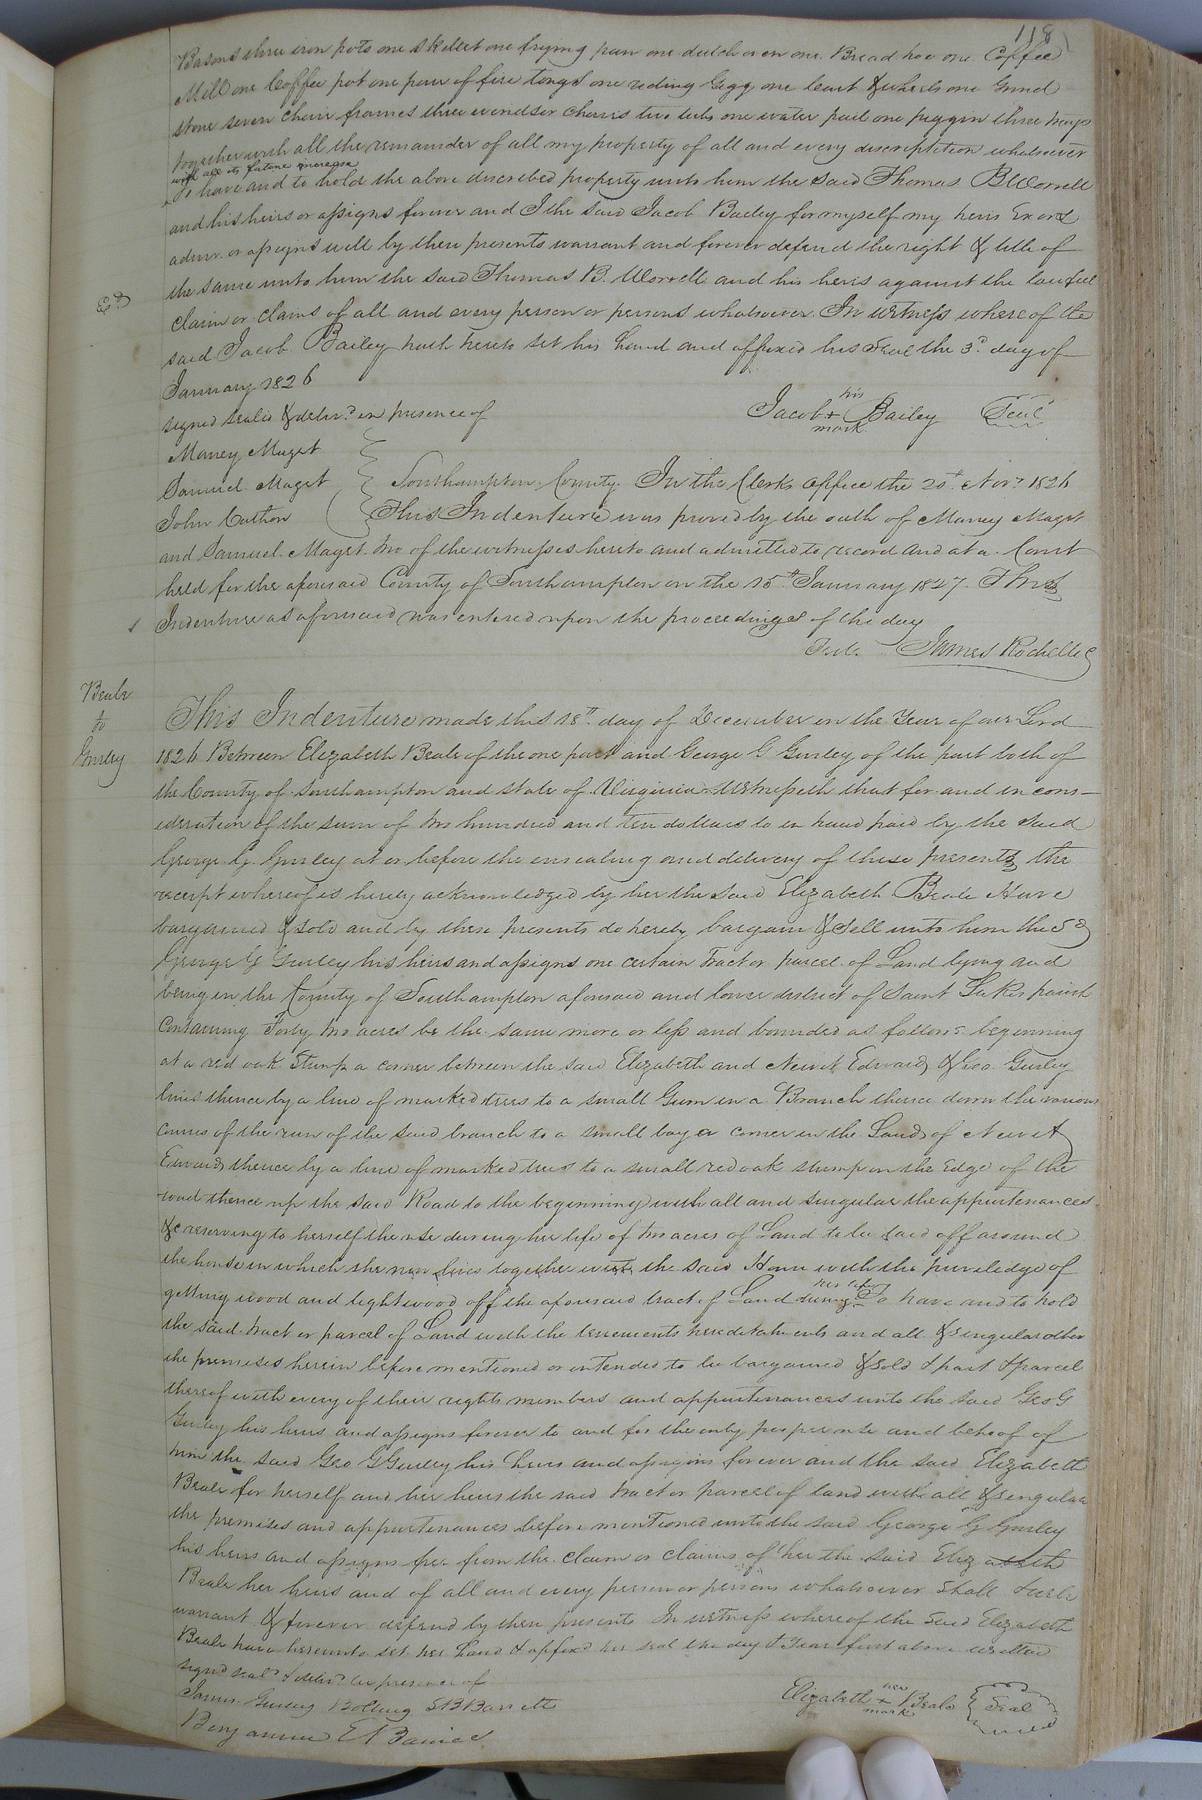 118
Basons three iron pots one skillet one frying pan one dutch oven one Bread hoe one Coffee
Mill one Coffee pot one pair of fire tongs one riding Gigg one Cart & wheels one Grind
stone seven chair frames three windsor chairs two tubs one water pail one piggin three
together with all the remainder of all my property of all and every discription whatsoever
with all its future increase
To have and to hold the above discribed property unto him the said Thomas B Worrell
and his heirs or assigns forever and I the said Jacob Bailey for myself my heirs Exors
admr. or assigns will by these presents warrant and forever defend the right & title of
the same unto him the said Thomas B. Worrell and his heirs against the lawful
Ex.d
claim or claims of all and every person or persons whatsoever In witness whereof the
said Jacob Bailey hath hereto set his hand and affixed his seal the 3d. day of
January 1826
signed seald & delivd. in presence of
his
Jacob + Bailey Seal
mark
Maney Maget
Samuel Maget
John Cathon
Southampton County. In the Clerks office the 20t. Novr. 1826
This Indenture was proved by the oath of Maney Maget
and Samuel Maget two of the witnesses hereto and admitted to record and at a Court
held for the aforesaid County of Southampton on the 15th January 1827. This
Indenture as aforesaid was entered upon the proceedings of the day
Teste. James Rochelle
Beale
to
Gurley
This Indenture made this 18th. day of December in the Year of our Lord
1826 Between Elizabeth Beale of the one part and George G Gurley of the part both of
the County of Southampton and state of Virginia Witnesseth that for and in cons-
ideration of the sum of two hundred and ten dollars to in hand paid by the said
George G. Gurley at or before the ensealing and delivery of these presents the
receipt whereof is hereby acknowledged by her the said Elizabeth Beale Have
bargained & sold and by these presents do hereby bargain & sell unto him the sd
George G Gurley his heirs and assigns one certain Tract or parcel of Land lying and
being in the County of Southampton aforesaid and lower district of Saint Lukes parish
Containing Forty two acres be the same more or less and bounded as follows beginning
at a red oak Stump a corner between the said Elizabeth and Newit Edwards & Geo. Gurley
lines thence by a line of marked trees to a small Gum in a Branch thence down the various
courses of the run of the said branch to a small bay a corner in the Lands of Newit
Edwards thence by a line of marked trees to a small red oak stump on the Edge of the
road thence up the said Road to the beginning with all and singular the appurtenances
&c reserving to herself the use during her life of two acres of Land to be laid off around
the house in which she now lives together with the said House with the priviledge of
her life
getting wood and lightwood off the aforesaid tract of Land during To have and to hold
the said tract or parcel of Land with the tenements hereditaments and all & singular other
the premises herein before mentioned or intended to be bargained & sold & part & parcel
thereof with every of their rights members and appurtenances unto the said Geo G
Gurley his heirs and assigns forever to and for the only proper use and behoof of
him the said Geo G Gurley his heirs and assigns forever and the said Elizabeth
Beale for herself and her heirs the said tract or parcel of land with all & singular
the premises and appurtenances before mentioned unto the said George G Gurley
his heirs and assigns free from the claim or claims of her the said Elizabeth
Beale her heirs and of all and every person or persons whatsoever shall
warrant & forever defend by these presents In witness whereof the said Elizabeth
Beale have hereunto set her hand & affixd her seal the day & Year first above written
signd seald & delivd in presence of
her
Elizabeth + Beale Seal
mark
James Gurley Bolling S B Barrett
Benjamin E